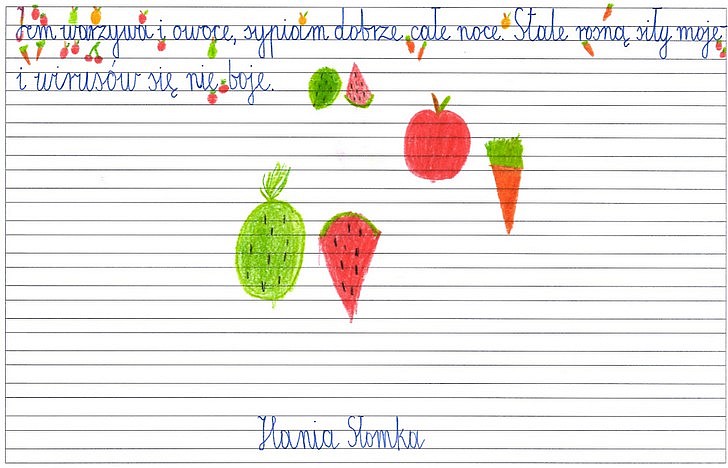 Jem warzywa i owoce, sypiam dobrze całe noce. Stale rosną siły moje
i wirusów się nie boję.
Hania Słomka